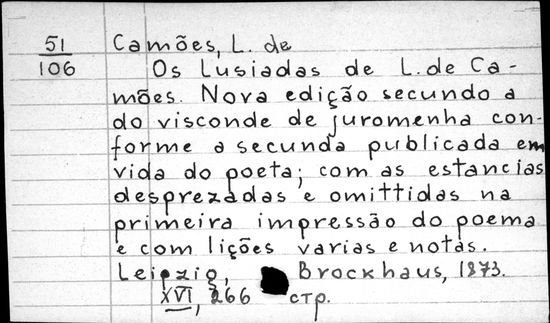 51
106
Camões, L. de
Os Lusiadas de L. de Ca-
mões. Nova edição secundo a
do visconde de juromenha con-
forme a secunda publicada em
vida do poeta; com as estancias
desprezadas e omittidas na
primeira impressão do poema
e com lições varias e notas.
Leipzig, Brockhaus, 1873.
XVI, 266 стр.